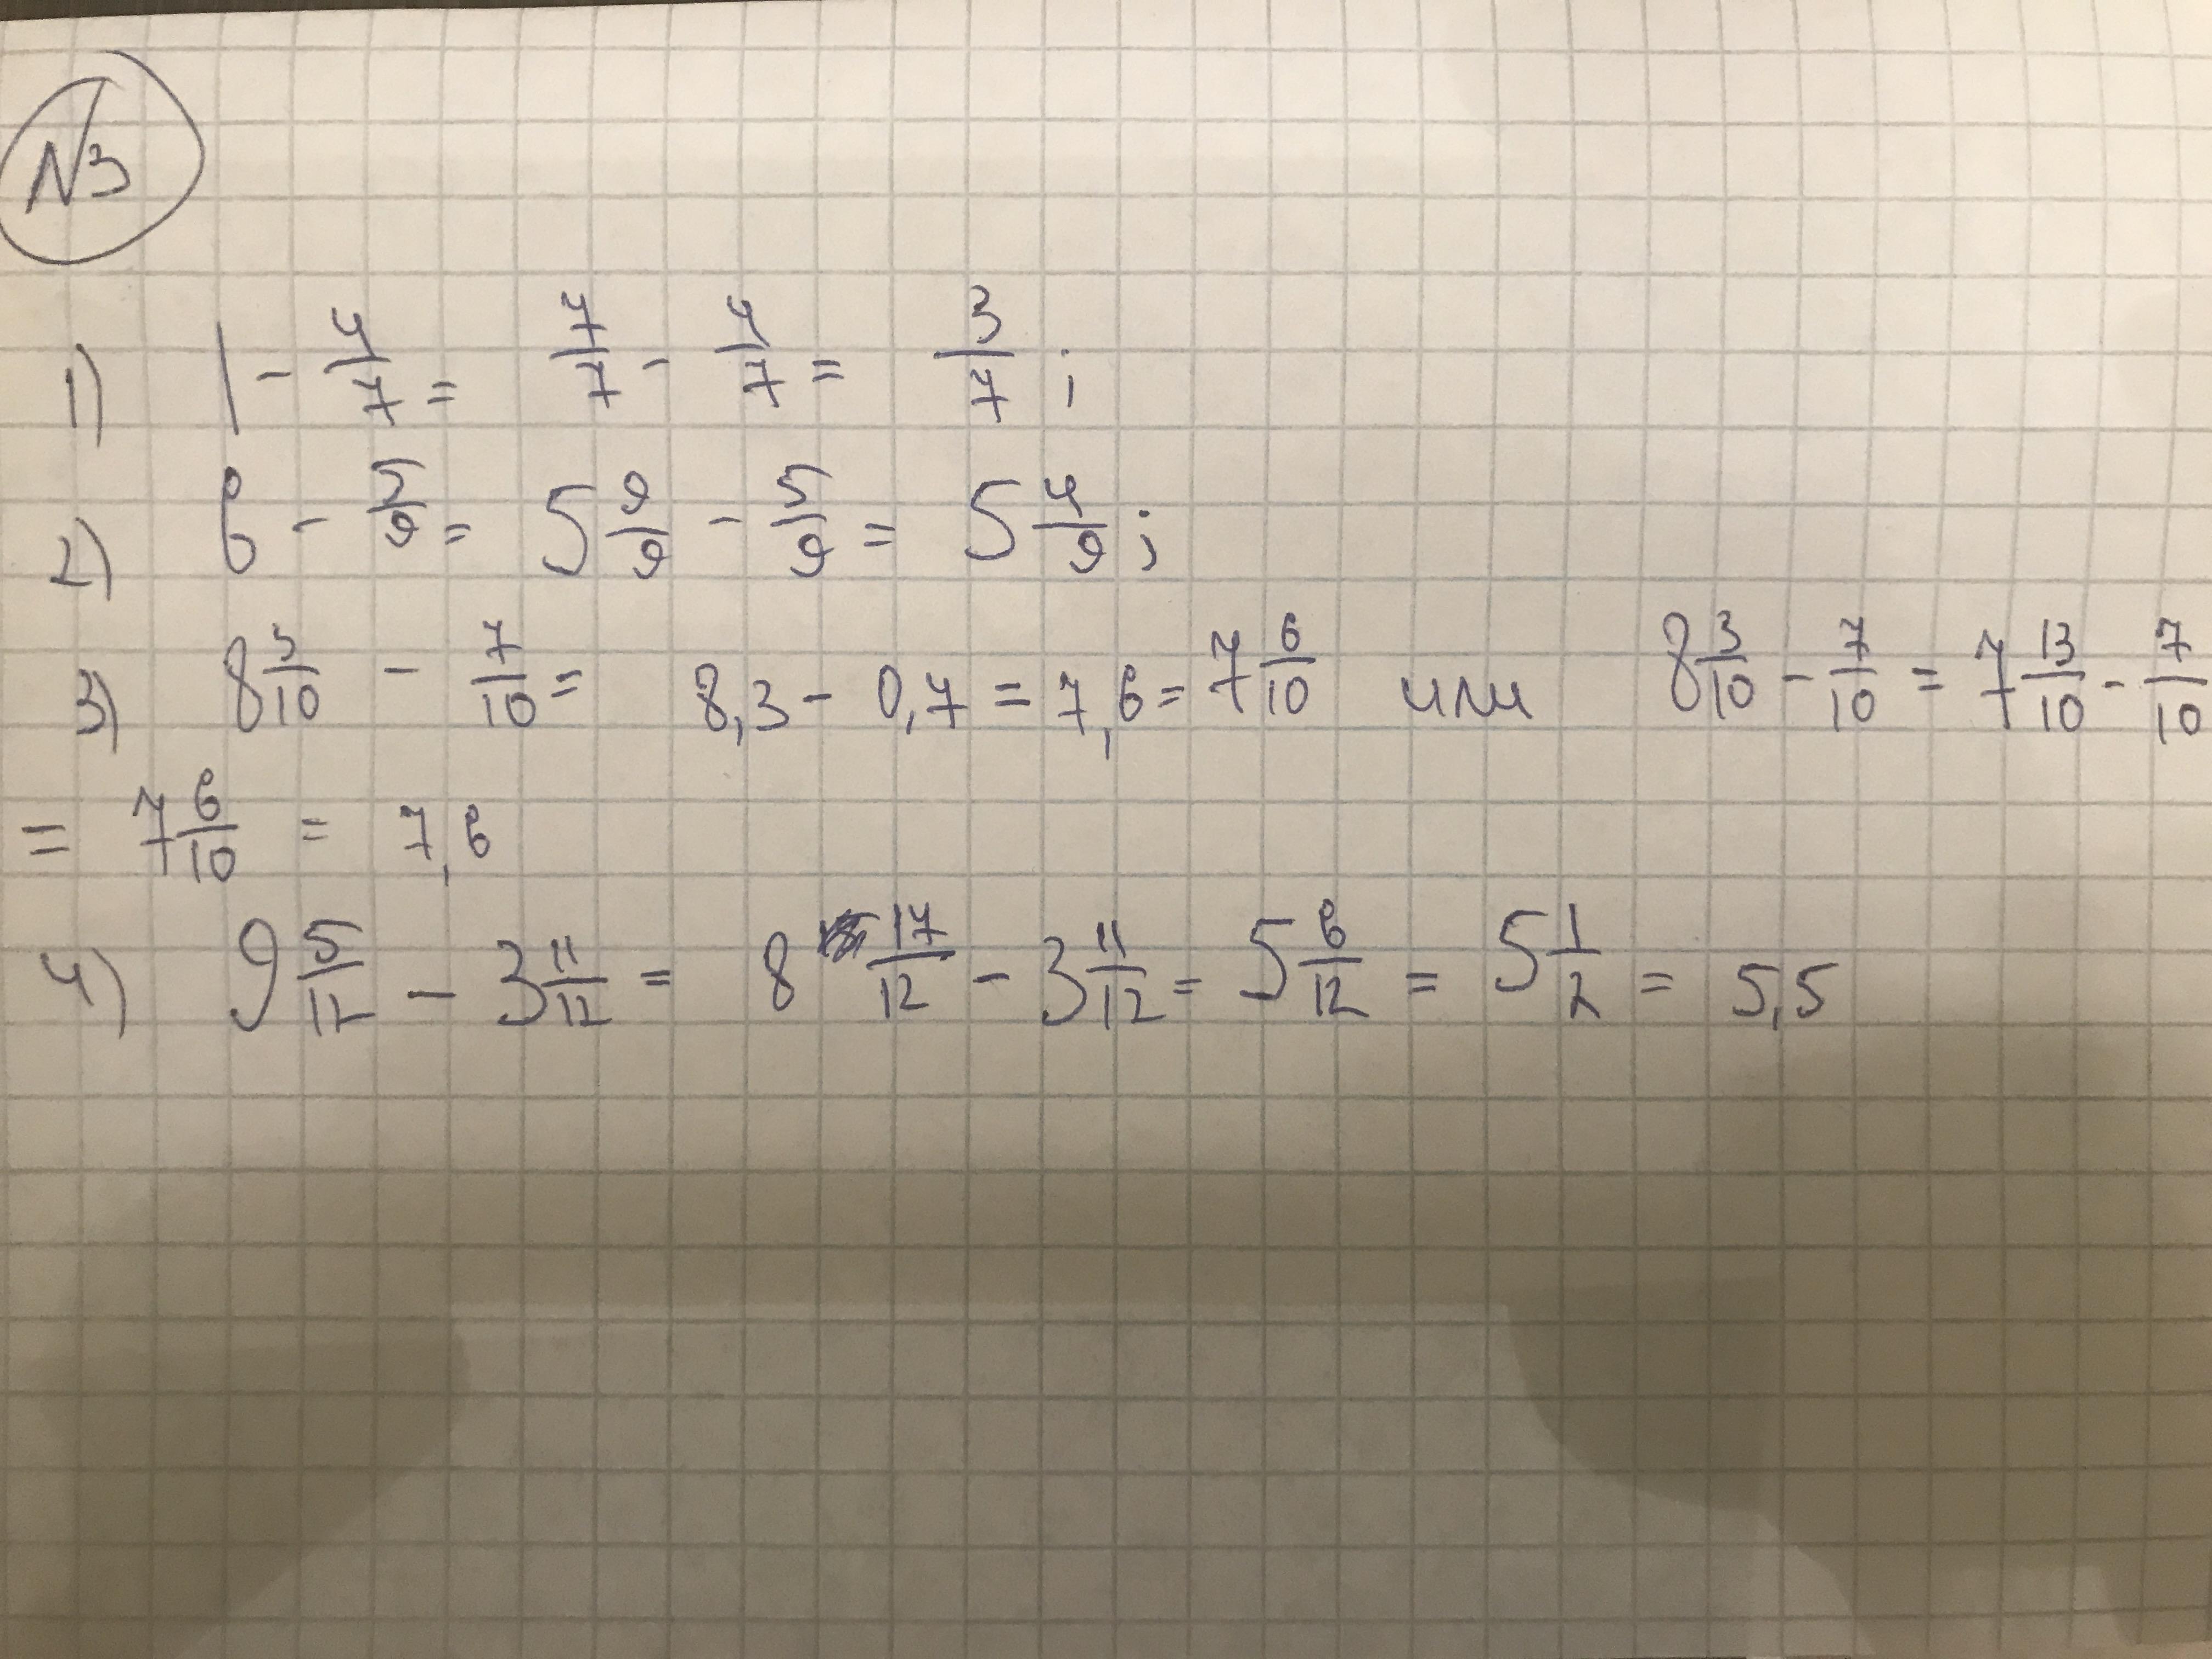 N3
1) 1 - 4/7 = 7/7 - 4/7 = 3/7 ;
2) 6 - 5/9 = 5 9/9 - 5/9 = 5 4/9 ;
3) 8 3/10 - 7/10 = 8,3 - 0,7 = 7,6 = 7 6/10 или 8 3/10 - 7/10 = 7 13/10 - 7/10
= 7 6/10 = 7,6
4) 9 5/12 - 3 11/12 = 8 17/12 - 3 11/12 = 5 6/12 = 5 1/2 = 5,5